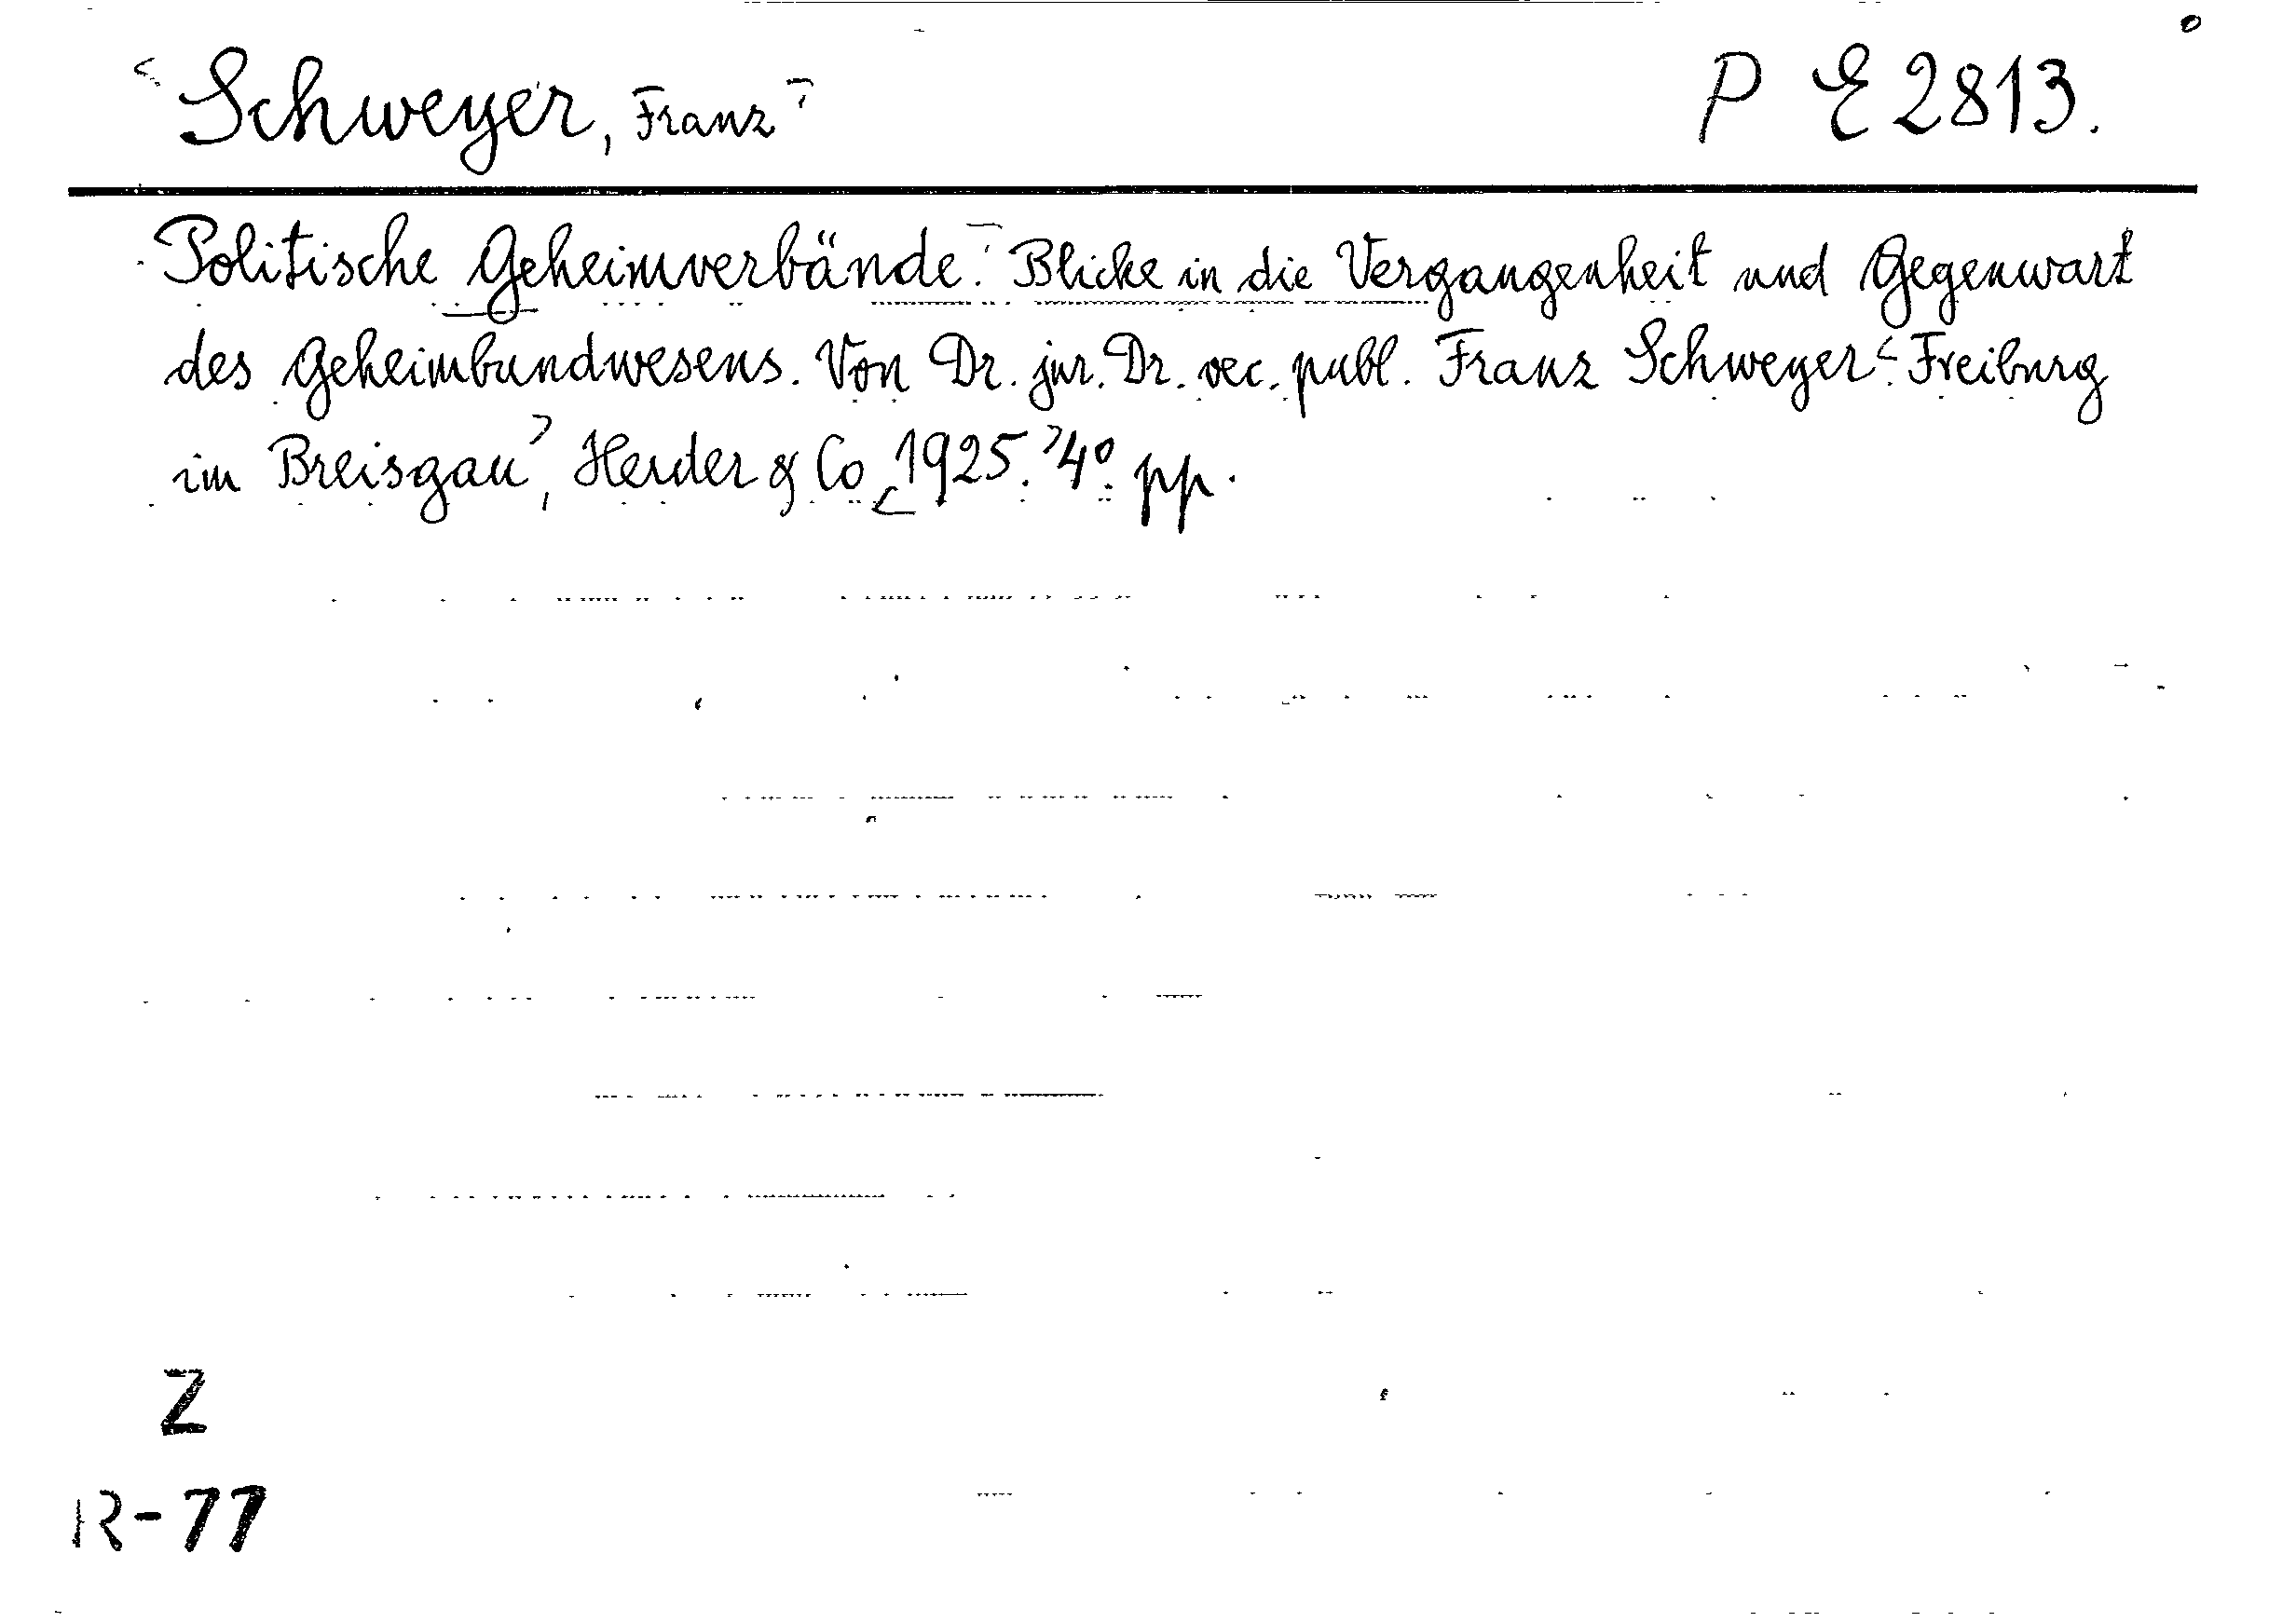 Schweyer, Franz
P E 2813.
Politische Geheimverbände. Blicke in die Vergangenheit und Gegenwart
des Geheimbundwesens. Von Dr. jur. Dr. oec. publ. Franz Schweyer. Freiburg
im Breisgau, Herder & Co 1925. 4°. pp.
Z
R-77